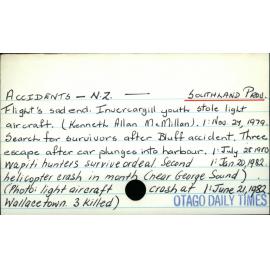 ACCIDENTS - N.Z. - SOUTHLAND PROV.
Flight's sad end. Invercargill youth stole light
aircraft. (Kenneth Allan McMillan). 1: Nov. 27, 1979.
Search for survivors after Bluff accident. Three
escape after car plunges into harbour. 1: July 28 1980
Wapiti hunters survive ordeal. Second 1: Jan. 20, 1982.
helicopter crash in month (near George Sound).
(Photo: light aircraft crash at 1: June 21, 1982
Wallacetown. 3 killed)
OTAGO DAILY TIMES